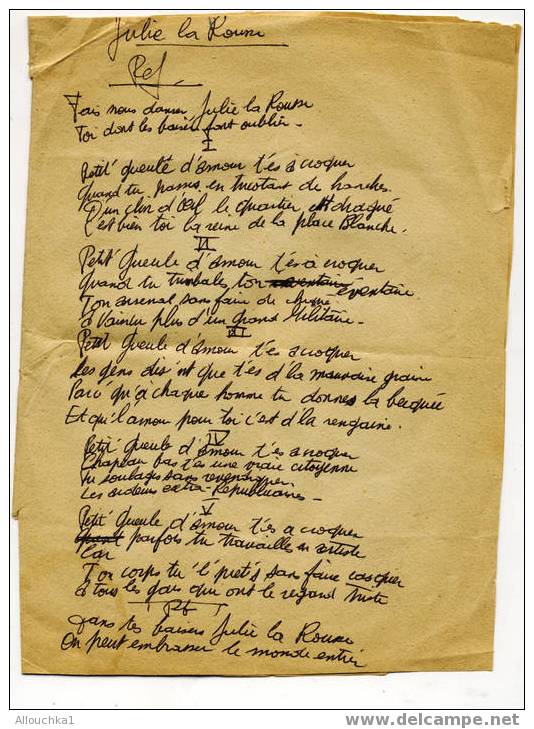 Julie la Rousse
Ref
Fais nous danser Julie la Rousse
Toi dont les baisers font oublier -
I
Petit' gueule d'amour t'es à croquer
Quand tu passes en tricotant des hanches
D'un clin d'œil le quartier est dragué
C'est bien toi la reine de la place Blanche.
II
Petit' gueule d'amour t'es à croquer
Quand tu trimbales ton éventaire
Ton arsenal sans faire de
à Vaincu plus d'un grand Militaire -
III
Petit' gueule d'amour t'es a croquer
Les gens dis'nt que t'es d'la mauvaise graine
Parc' qu'à chaque homme tu donnes la becquée
Et qu'l'amour pour toi c'est d'la rengaine.
IV
Petit' gueule d'amour t'es a croquer
Chapeau bas t'es une vraie citoyenne
Tu soulages sans revendiquer
Les ardeurs extra-Républicaines -
V
Petit' gueule d'amour t'es a croquer
parfois tu travailles en artiste
Car
Ton corps tu l'prêt's sans faire casquer
à tous les gars qui ont le regard triste
Ref
Dans tes baisers Julie la Rousse
On peut embrasser le monde entier
Allouchka1
www.delcampe.net